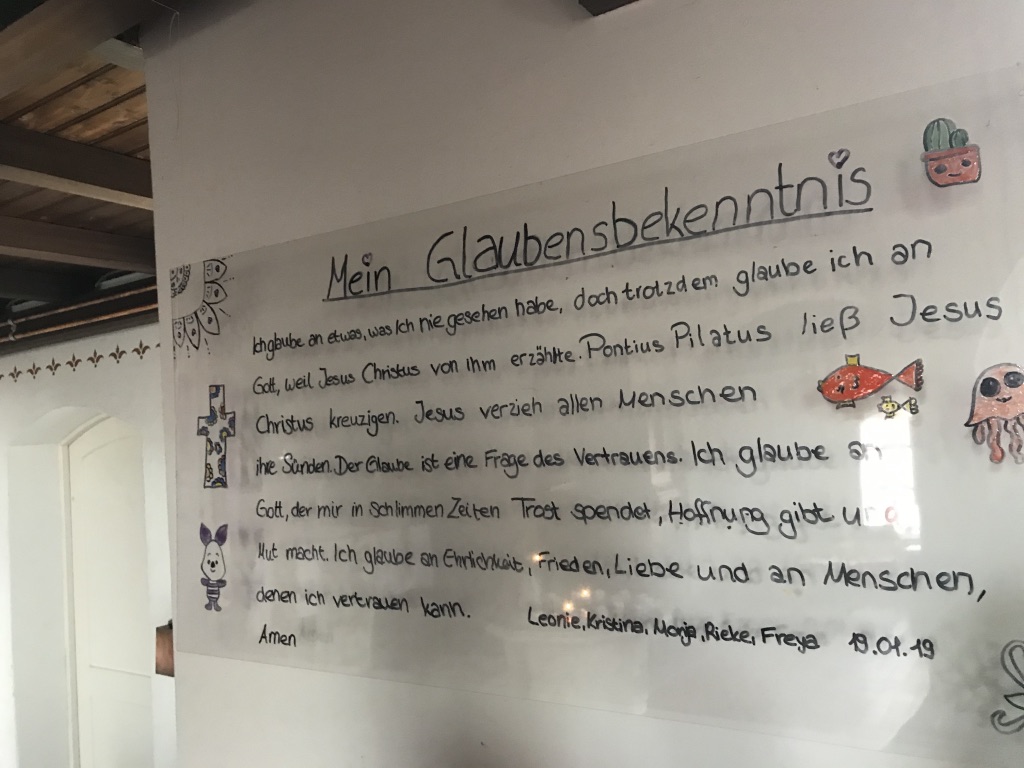 Mein Glaubensbekenntnis
Ich glaube an etwas, was Ich nie gesehen habe, doch trotzdem glaube ich an
Gott, weil Jesus Christus von ihm erzählte. Pontius Pilatus ließ Jesus
Christus kreuzigen. Jesus verzieh allen Menschen
ihre Sünden. Der Glaube ist eine Frage des Vertrauens. Ich glaube an
Gott, der mir in Schlimmen Zeiten Trost spendet, Hoffnung gibt und
Mut macht. Ich glaube an Ehrlichkeit, Frieden, Liebe und an Menschen,
denen ich vertrauen kann.
Leonie, Kristina, Monja, Rieke, Freya 19.01.19
Amen